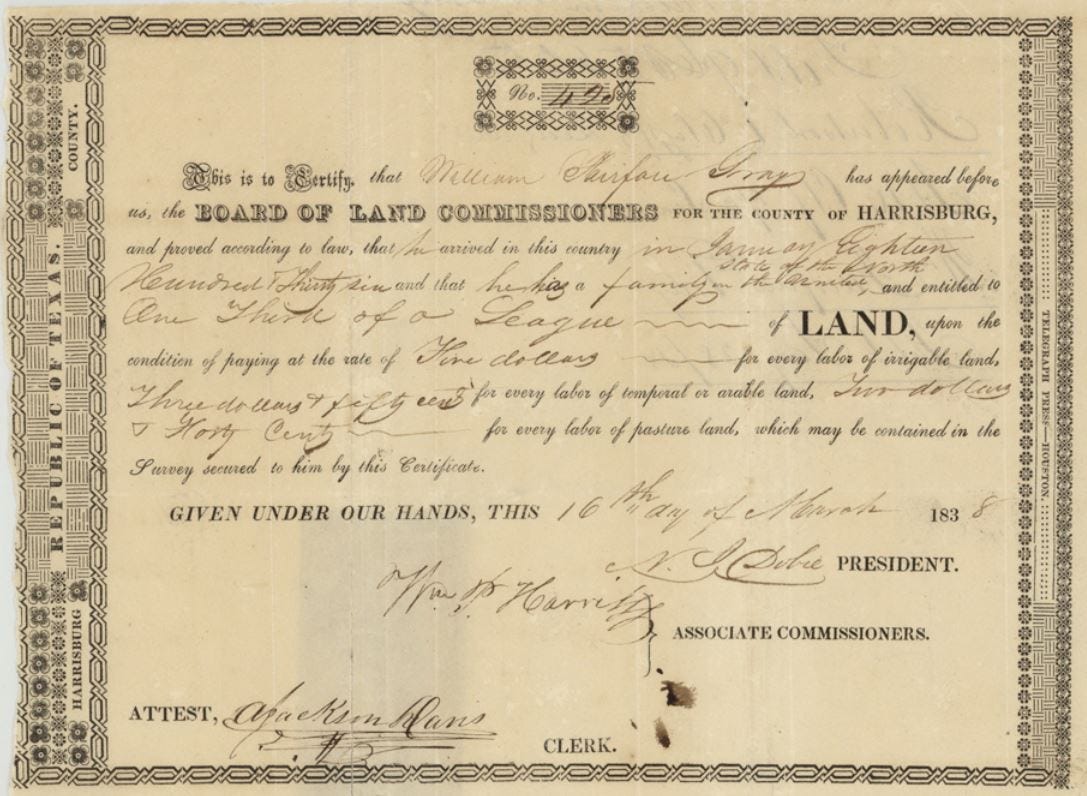 No. 420
This is to Certify, that William Fairfax Gray has appeared before
us, the BOARD OF LAND COMMISSIONERS FOR THE COUNTY OF HARRISBURG,
and proved according to law, that he arrived in this country in January Eighteen
Hundred & Thirty six and that he has a family in the United State of the North, and entitled to
One Third of a League of LAND, upon the
condition of paying at the rate of Five dollars for every labor of irrigable land,
Three dollars & fifty cents for every labor of temporal or arable land, Two dollars
& Forty Cents for every labor of pasture land, which may be contained in the
Survey secured to him by this Certificate.
GIVEN UNDER OUR HANDS, THIS 16th day of March 1838
N. Dobie PRESIDENT.
Wm P Harris
ASSOCIATE COMMISSIONERS.
ATTEST, A Jackson Davis
CLERK.
HARRISBURG COUNTY.
REPUBLIC OF TEXAS.
TELEGRAPH PRESS—HOUSTON.